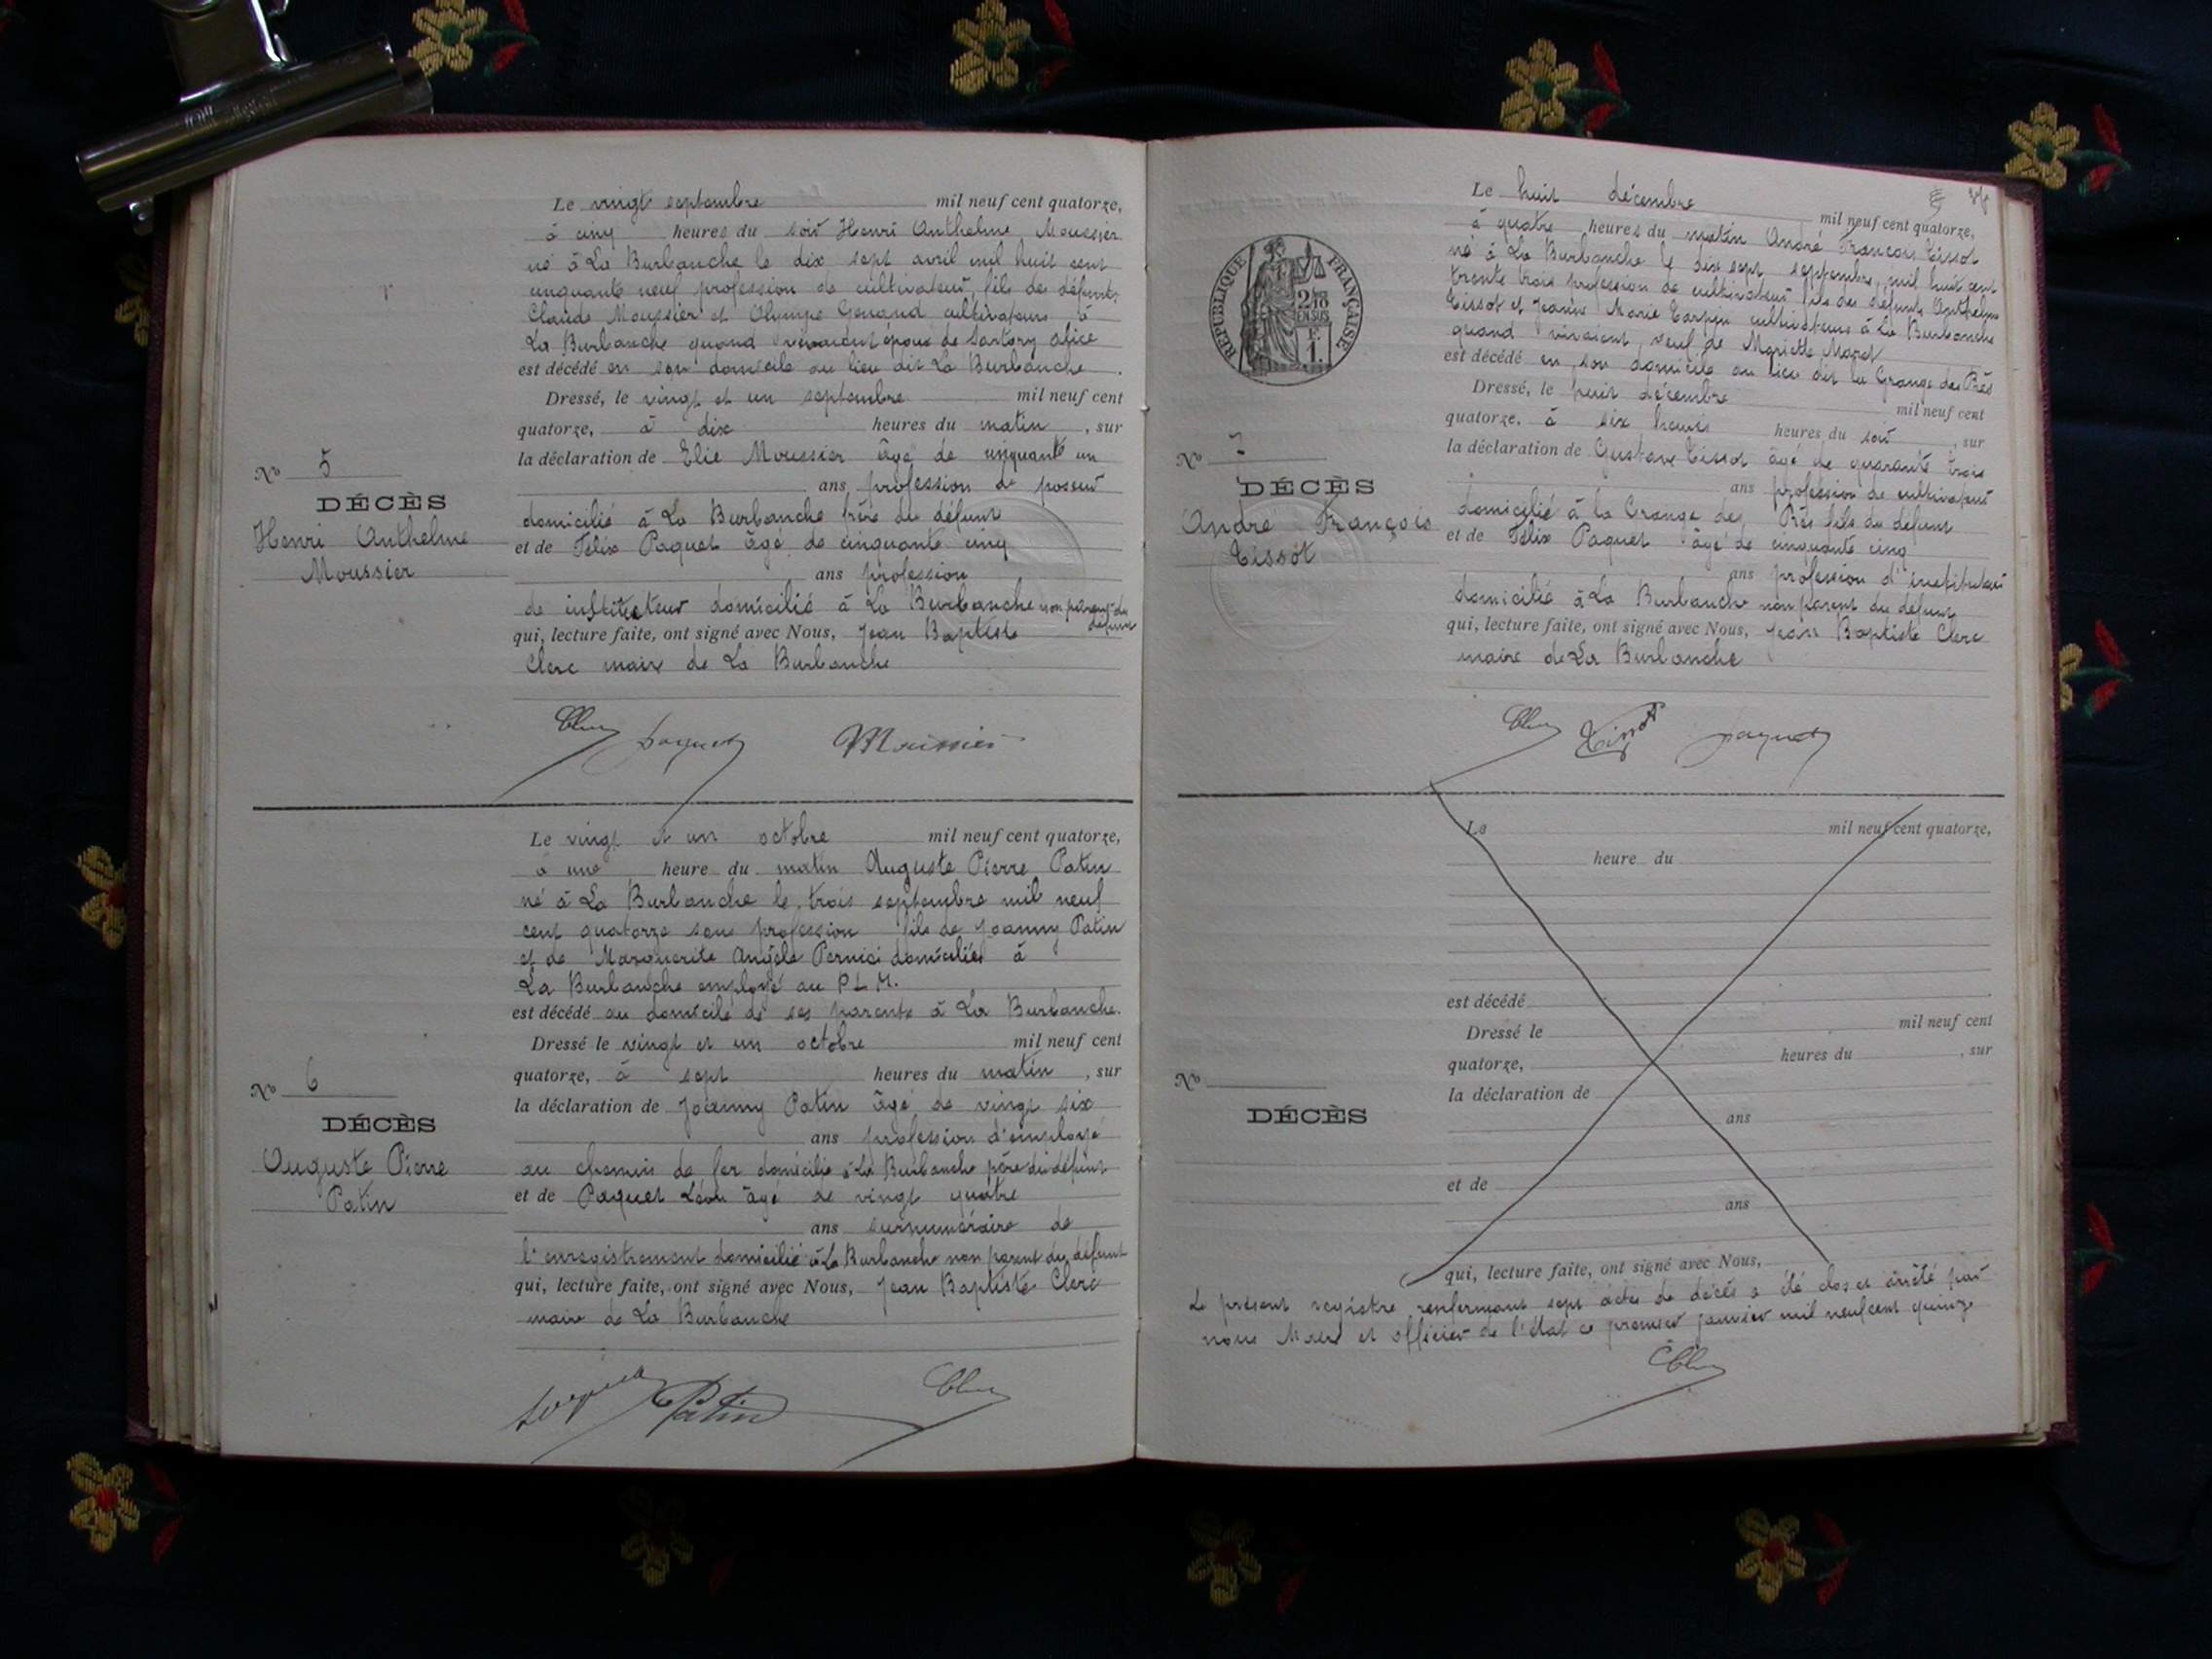 Le vingt septembre mil neuf cent quatorze,
à cinq heures du soir Henri Anthelme Moussier
né à La Burbanche le dix sept avril mil huit cent
cinquante neuf profession de cultivateur, fils de défunts
Claude Moussier et Olympe Genand cultivateurs à
La Burbanche quand vivaient époux de Sartory alice
est décédé en son domicile au lieu dit La Burbanche.
Dressé, le vingt et un septembre mil neuf cent
quatorze, à dix heures du matin, sur
la déclaration de Elie Moussier âgé de cinquante un
ans profession de poseur
domicilié à La Burbanche frère du défunt
et de Félix Paquet âgé de cinquante cinq
ans profession
de instituteur domicilié à La Burbanche non parent du
défunt
qui, lecture faite, ont signé avec Nous, Jean Baptiste
Clerc maire de La Burbanche
No 5
DÉCÈS
Henri Anthelme
Moussier
Clerc Paquet Moussier
Le vingt et un octobre mil neuf cent quatorze,
à une heure du matin Auguste Pierre Patin
né à La Burbanche le trois septembre mil neuf
cent quatorze sans profession fils de Joanny Patin
et de Marguerite Angèle Pernici domiciliés à
La Burbanche employé au P.L.M.
est décédé au domicile de ses parents à La Burbanche.
Dressé le vingt et un octobre mil neuf cent
quatorze, à sept heures du matin, sur
la déclaration de Joanny Patin âgé de vingt six
ans profession d'employé
au chemin de fer domicilié à La Burbanche père du défunt
et de Paquet Léon âgé de vingt quatre
ans surnuméraire de
l'enregistrement domicilié à La Burbanche non parent du défunt
qui, lecture faite, ont signé avec Nous, Jean Baptiste Clerc
maire de La Burbanche
No 6
DÉCÈS
Auguste Pierre
Patin
Paquet Patin Clerc
RÉPUBLIQUE FRANÇAISE
2/10
EN SUS
F.
1.
Le huit décembre mil neuf cent quatorze,
à quatre heures du matin André François Tissot
né à La Burbanche le dix sept septembre mil huit cent
trente trois profession de cultivateur fils des défunts Anthelme
Tissot et Jeanne Marie cultivateurs à La Burbanche
quand vivaient, veuf de Mariette Maret
est décédé en son domicile au lieu dit la Grange des Prés
Dressé, le huit décembre mil neuf cent
quatorze, à six heures heures du soir, sur
la déclaration de Gustave Tissot âgé de quarante trois
ans profession de cultivateur
domicilié à la Grange des Prés fils du défunt
et de Félix Paquet âgé de cinquante cinq
ans profession d'instituteur
domicilié à La Burbanche non parent du défunt
qui, lecture faite, ont signé avec Nous, Jean Baptiste Clerc
maire de La Burbanche
No 7
DÉCÈS
André François
Tissot
Clerc Tissot Paquet
Le mil neuf cent quatorze,
heure du
est décédé
Dressé le mil neuf cent
quatorze, heures du , sur
la déclaration de
ans
et de
ans
qui, lecture faite, ont signé avec Nous,
No
DÉCÈS
Le présent registre renfermant sept actes de décès a été clos et arrêté par
nous Maire et officier de l'état ce premier janvier mil neuf cent quinze
Clerc